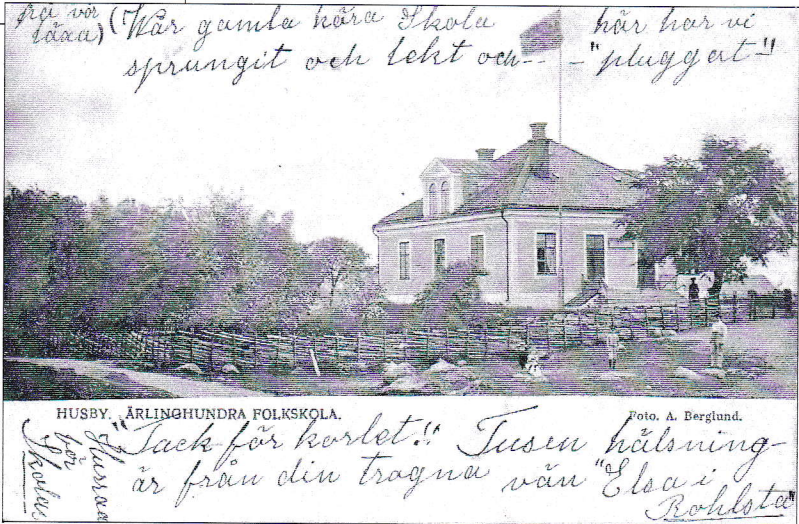 på vår
läxa)
(Wår gamla kära Skola här har vi
sprungit och lekt och--- "pluggat"
HUSBY. ÄRLINGHUNDRA FOLKSKOLA.
Foto. A. Berglund.
"Tack för kortet"!! Tusen hälsning-
ar från din trogna vän "Elsa i
Rohlsta"
Hurra
för
Skolan